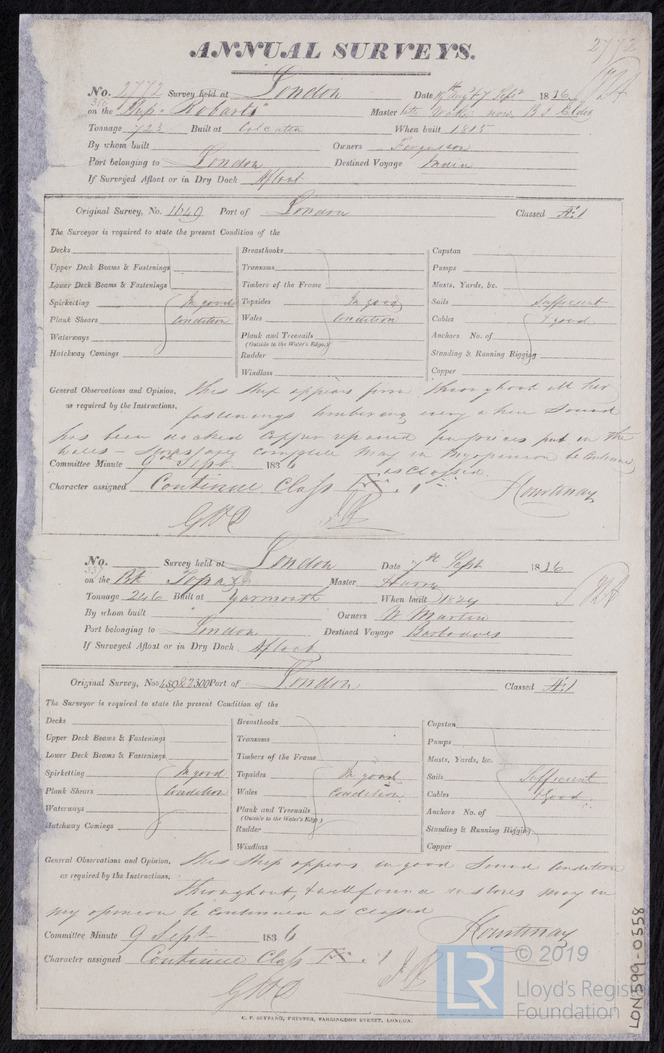 2772
ANNUAL SURVEYS.
No. 2772 Survey held at London Date 1836
on the Ship "Robarts" Master late now
Tonnage 723 Built at Calcutta When built 1815
By whom built Owners Ferguson
Port belonging to London Destined Voyage India
If Surveyed Afloat or in Dry Dock Afloat
Original Survey, No. 1649 Port of London Classed Æ.1
The Surveyor is required to state the present Condition of the
Decks Breasthooks Capstan
Upper Deck Beams & Fastenings Transoms Pumps
Lower Deck Beams & Fastenings Timbers of the Frame Masts, Yards, &c.
Spirketting In good Topsides In good Sails Sufficient
Plank Shears Condition Wales Condition Cables & good
Waterways Plank and Treenails Anchors No. of
(Outside to the Water's Edge)
Hatchway Comings Rudder Standing & Running Rigging
Windlass Copper
General Observations and Opinion, This Ship appears firm throughout all her
as required by the Instructions. fastenings timbering every where Sound
has been docked Copper repaired put in the
complete may in my opinion be Continued
Committee Minute 9 Sept. 1836 as Classed.
Character assigned Continue Class Æ.1 Courtenay
No. Survey held at London Date 7th Sept 1836
on the Bk Topaz Master
Tonnage 246 Built at Yarmouth When built 1824
By whom built Owners W Martin
Port belonging to London Destined Voyage Barbadoes
If Surveyed Afloat or in Dry Dock Afloat
Original Survey, No. & 2300 Port of London Classed Æ.1
The Surveyor is required to state the present Condition of the
Decks Breasthooks Capstan
Upper Deck Beams & Fastenings Transoms Pumps
Lower Deck Beams & Fastenings Timbers of the Frame Masts, Yards, &c.
Spirketting In good Topsides In good Sails Sufficient
Plank Shears Condition Wales Condition Cables & Good
Waterways Plank and Treenails Anchors No. of
(Outside to the Water's Edge)
Hatchway Comings Rudder Standing & Running Rigging
Windlass Copper
General Observations and Opinion, This Ship appears in good Sound Condition
as required by the Instructions. Throughout, & well found in stores may in
my opinion be Continued as Classed
Committee Minute 9 Sept. 1836 Courtenay
Character assigned Continue Class Æ.1
C. F. SEYFANG, PRINTER, FARRINGDON STREET, LONDON.
LON599-0558
© 2019
LR
Lloyd's Register
Foundation